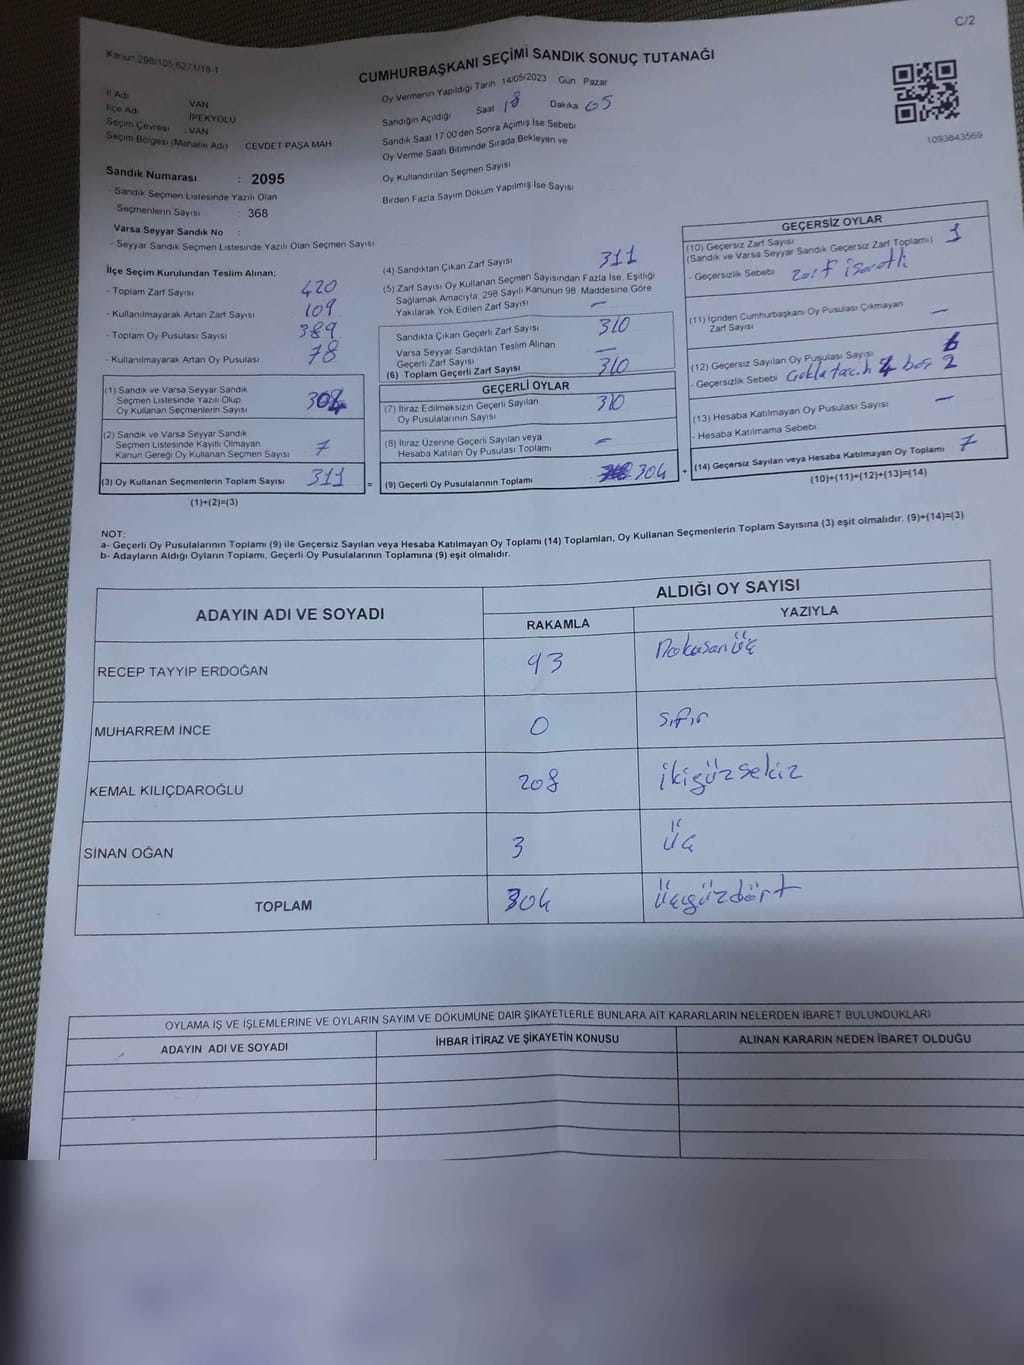 C/2
Kanun 298/105,6271/18-1
CUMHURBAŞKANI SEÇİMİ SANDIK SONUÇ TUTANAĞI
İl Adı VAN
İlçe Adı İPEKYOLU
Seçim Çevresi : VAN
Seçim Bölgesi (Mahalle Adı) CEVDET PAŞA MAH
Sandık Numarası : 2095
- Sandık Seçmen Listesinde Yazılı Olan
Seçmenlerin Sayısı : 368
Varsa Seyyar Sandık No :
- Seyyar Sandık Seçmen Listesinde Yazılı Olan Seçmen Sayısı
Oy Vermenin Yapıldığı Tarih 14/05/2023 Gün Pazar
Sandığın Açıldığı Saat 18 Dakika 05
Sandık Saat 17:00'den Sonra Açılmış İse Sebebi
Oy Verme Saati Bitiminde Sırada Bekleyen ve
Oy Kullandırılan Seçmen Sayısı
Birden Fazla Sayım Döküm Yapılmış İse Sayısı
1093843569
İlçe Seçim Kurulundan Teslim Alınan;
- Toplam Zarf Sayısı 420
- Kullanılmayarak Artan Zarf Sayısı 109
- Toplam Oy Pusulası Sayısı 389
- Kullanılmayarak Artan Oy Pusulası 78
(1) Sandık ve Varsa Seyyar Sandık
Seçmen Listesinde Yazılı Olup
Oy Kullanan Seçmenlerin Sayısı 304
(2) Sandık ve Varsa Seyyar Sandık
Seçmen Listesinde Kayıtlı Olmayan
Kanun Gereği Oy Kullanan Seçmen Sayısı 7
(3) Oy Kullanan Seçmenlerin Toplam Sayısı 311 =
(1)+(2)=(3)
(4) Sandıktan Çıkan Zarf Sayısı 311
(5) Zarf Sayısı Oy Kullanan Seçmen Sayısından Fazla İse, Eşitliği
Sağlamak Amacıyla, 298 Sayılı Kanunun 98. Maddesine Göre
Yakılarak Yok Edilen Zarf Sayısı –
Sandıkta Çıkan Geçerli Zarf Sayısı 310
Varsa Seyyar Sandıktan Teslim Alınan
Geçerli Zarf Sayısı –
(6) Toplam Geçerli Zarf Sayısı 310
GEÇERLİ OYLAR
(7) İtiraz Edilmeksizin Geçerli Sayılan
Oy Pusulalarının Sayısı 310
(8) İtiraz Üzerine Geçerli Sayılan veya
Hesaba Katılan Oy Pusulası Toplamı –
(9) Geçerli Oy Pusulalarının Toplamı 304 +
GEÇERSİZ OYLAR
(10) Geçersiz Zarf Sayısı
(Sandık ve Varsa Seyyar Sandık Geçersiz Zarf Toplamı) 1
- Geçersizlik Sebebi zarf işaretli
(11) İçinden Cumhurbaşkanı Oy Pusulası Çıkmayan
Zarf Sayısı –
(12) Geçersiz Sayılan Oy Pusulası Sayısı 6
- Geçersizlik Sebebi 4 boş 2
(13) Hesaba Katılmayan Oy Pusulası Sayısı –
- Hesaba Katılmama Sebebi
(14) Geçersiz Sayılan veya Hesaba Katılmayan Oy Toplamı 7
(10)+(11)+(12)+(13)=(14)
NOT:
a- Geçerli Oy Pusulalarının Toplamı (9) ile Geçersiz Sayılan veya Hesaba Katılmayan Oy Toplamı (14) Toplamları, Oy Kullanan Seçmenlerin Toplam Sayısına (3) eşit olmalıdır. (9)+(14)=(3)
b- Adayların Aldığı Oyların Toplamı, Geçerli Oy Pusulalarının Toplamına (9) eşit olmalıdır.
ADAYIN ADI VE SOYADI ALDIĞI OY SAYISI
RAKAMLA YAZIYLA
RECEP TAYYİP ERDOĞAN 93 Doksanüç
MUHARREM İNCE 0 sıfır
KEMAL KILIÇDAROĞLU 208 ikiyüzsekiz
SİNAN OĞAN 3 üç
TOPLAM 304 üçyüzdört
OYLAMA İŞ VE İŞLEMLERİNE VE OYLARIN SAYIM VE DÖKÜMÜNE DAİR ŞİKAYETLERLE BUNLARA AİT KARARLARIN NELERDEN İBARET BULUNDUKLARI
ADAYIN ADI VE SOYADI İHBAR İTİRAZ VE ŞİKAYETİN KONUSU ALINAN KARARIN NEDEN İBARET OLDUĞU